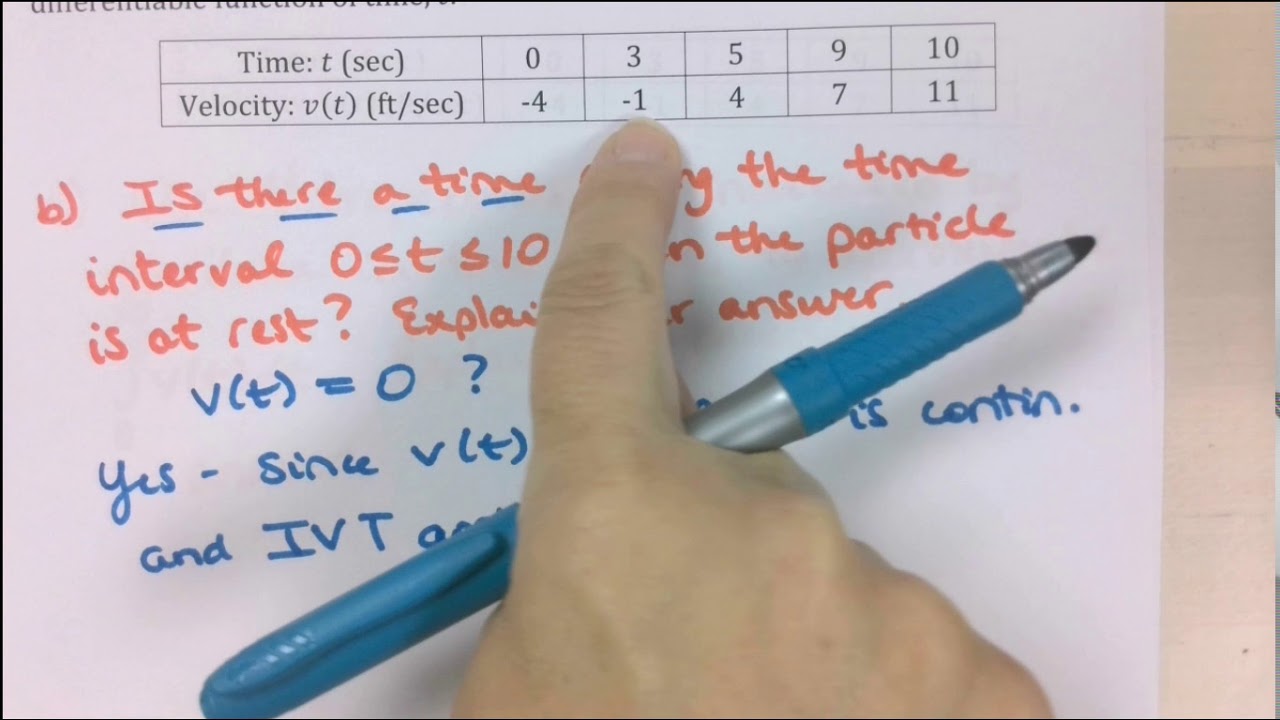 differentiable function of time, t.
Time: t (sec) 0 3 5 9 10
Velocity: v(t) (ft/sec) -4 -1 4 7 11
b) Is there a time the time
interval 0≤t≤10 the particle
is at rest? answer.
v(t) = 0 ?
Yes - since v(t) is contin.
and IVT